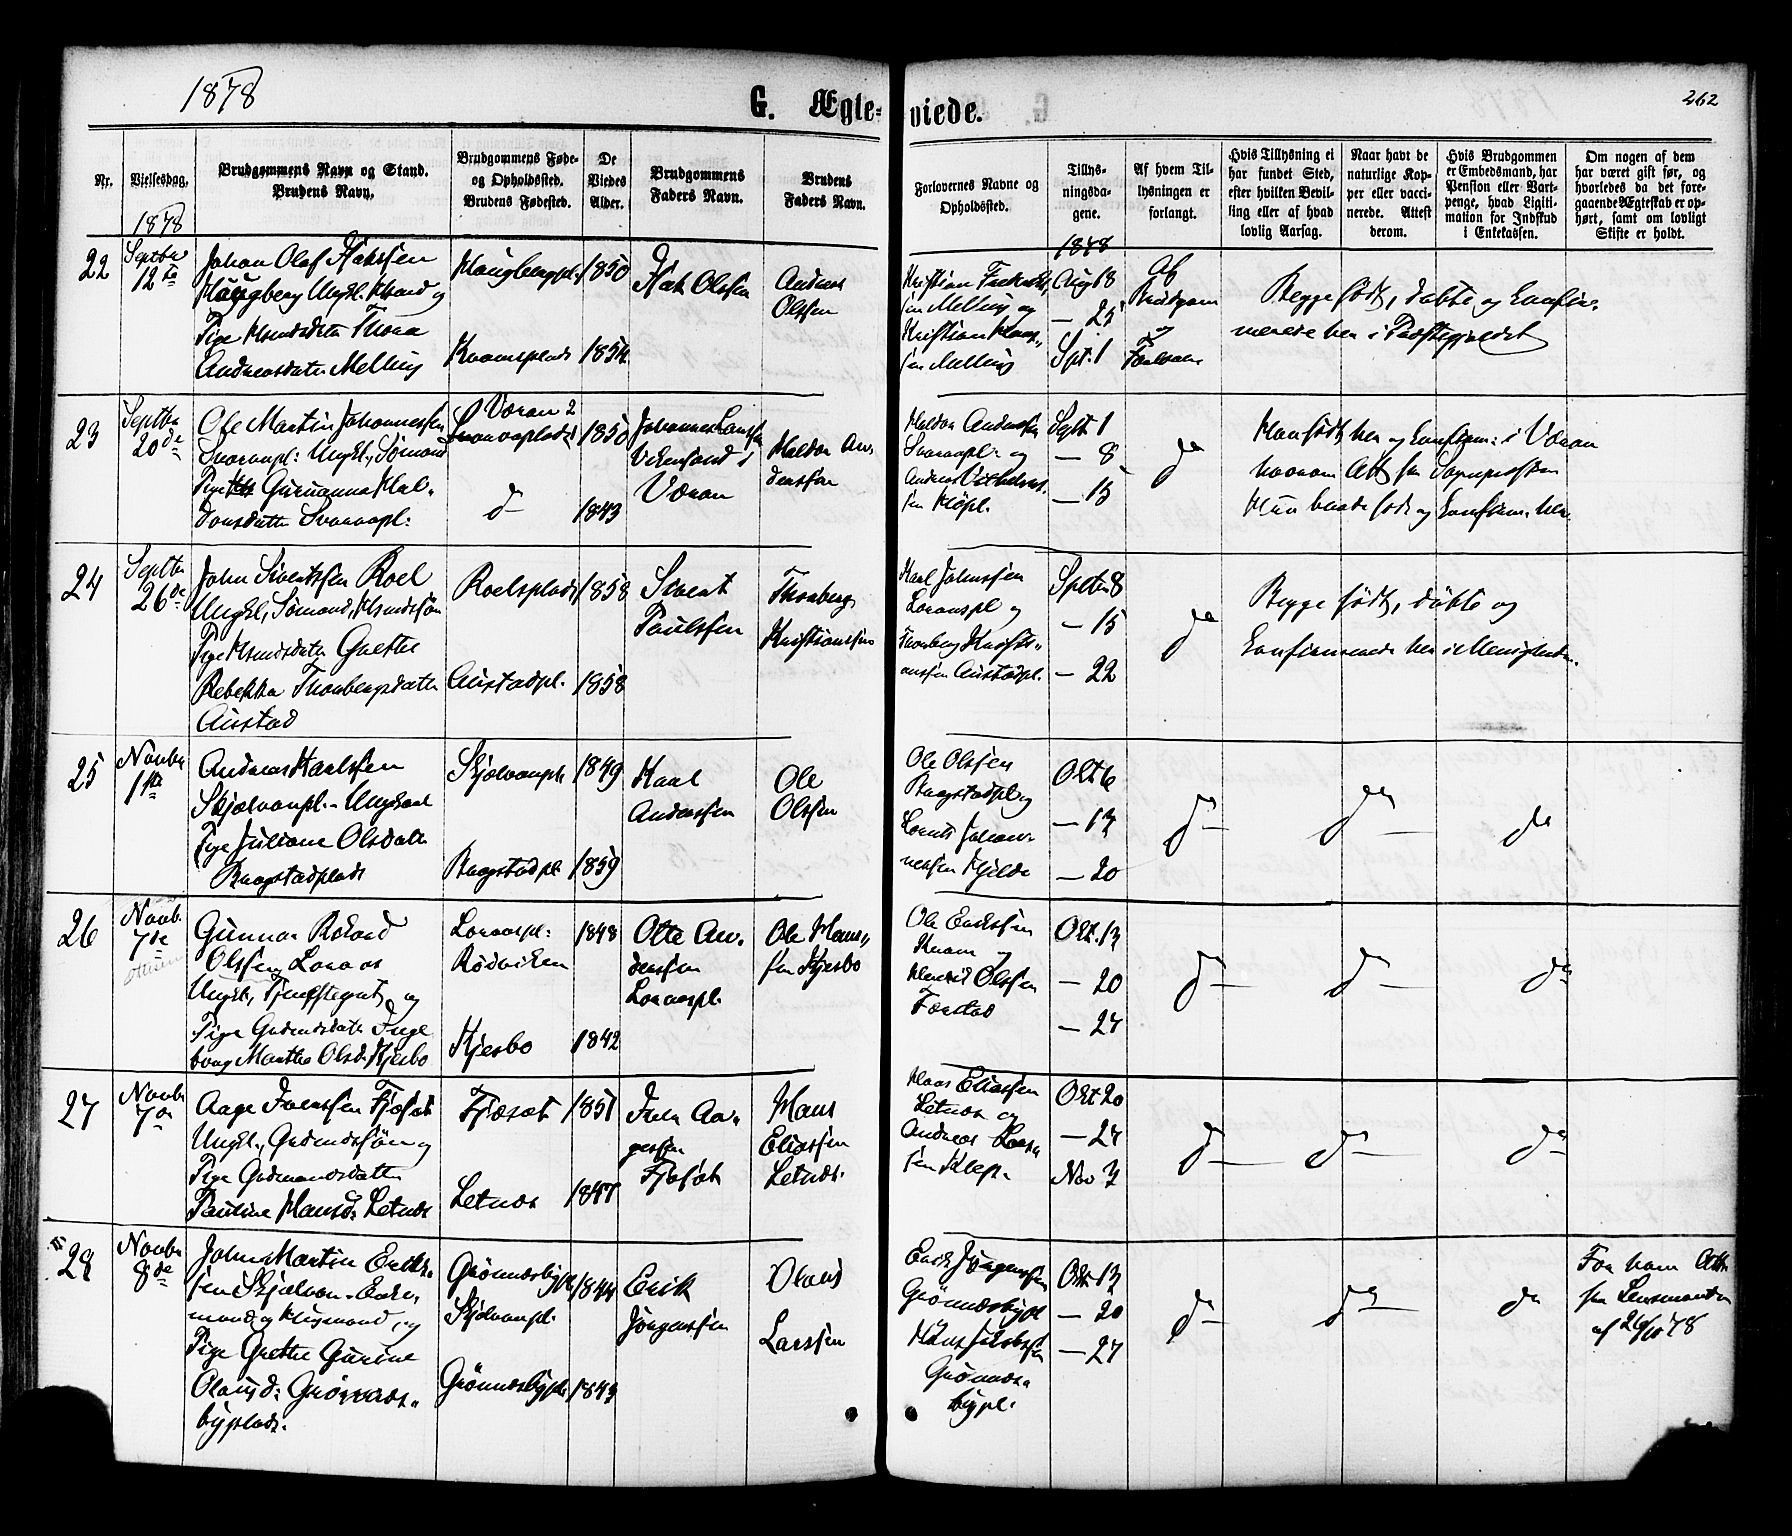 1878
G. Ægte-
viede.
262
Nr.
Vielsesdag.
Brudgommens Navn og Stand.
Brudens Navn.
Brudgommens Føde-
og Opholdssted.
Brudens Fødested.
De
Viedes
Alder.
Brudgommens
Faders Navn.
Brudens
Faders Navn.
Forlovernes Navne og
Opholdssted.
Tillys-
ningsda-
gene.
Af hvem Til-
lysningen er
forlangt.
Hvis Tillysning ei
har fundet Sted,
efter hvilken Bevil-
ling eller af hvad
lovlig Aarsag.
Naar havt de
naturlige Kop-
per eller vacci-
nerede. Attest
derom.
Hvis Brudgommen
er Embedsmand, har
Pension eller Vart-
penge, hvad Legiti-
mation for Indskud
i Enkekassen.
Om nogen af dem
har været gift før, og
hvorledes da det fore-
gaaende Ægteskab er op-
hørt, samt om lovligt
Skifte er holdt.
1878
1878
22
Septbr
12te
Johan Olaf
Haugberg Ungk. og
Pige Thora
Andreasdatter Melling
Haugbergpl.
Kvamsplads
1850
1854
Olssen
Andreas
Olssen
Kristian
Melling og
Kristian
Melling
Aug 18
— 25
Spt. 1
Af
Brudgom
og
Forlover
Begge født, døbte og konfir-
merede her i Præstegjeldet
23
Septbr
20de
Ole Martin Johannessen
Svarvapl: Ungkl., Sømand
Pige Gurianna Hal-
dorsdatter Svarvapl:
Værran
Svarvaplads
do
1850
1843
Johannes Larssen
Vikensand i
Værran
Haldor An-
derssen
Haldor Anderssen
Svarvapl. og
Andreas
Septr 1
— 8
— 15
do
Han født her og konfirm: i Værran
hvorom Att. fra Sognepresten
Hun baade født og konfirm. her
24
Septbr
26de
John Sivertssen Roel
Ungkl., Sømand,
Pige Grethe
Rebekka Thorbergsdatter
Austad
Roelsplads
Austadpl.
1858
1858
Sivert
Paulssen
Thorberg
Kristianssen
Karl Johnssen
Loraaspl og
Thorberg Kristi-
anssen Austadpl.
Septr 8
— 15
— 22
do
Begge født, døbte og
konfirmerede her i Menigheden.
25
Novbr
1ste
Andreas Karlssen
Skjelvaapl. Ungkarl
Pige Juliane Olsdatter
Raagstadplads
Skjelvaapl
Raagstadpl
1849
1859
Karl
Anderssen
Ole
Olssen
Ole Olssen
Raagstadpl og
Lornts Johan-
nessen Hjelde
Okt 6
— 13
— 20
do
do
do
26
Novb.
7de
Ottesen
Gunnar Rikard
Olssen Loraas
Ungkl., og
Pige Inge-
borg Marthe Olsd. Kjesbo
Loraaspl:
Rødviken
Kjesbo
1848
1842
Otte An-
derssen
Loraaspl.
Ole Hans-
sen Kjesbo
Ole Erikssen
Kvam og
Henrik Olssen
Færstad
Okt. 13
— 20
— 27
do
do
do
27
Novbr
7de
Aage Iverssen Fjæsæt
Ungkl., Grdmndssøn og
Pige Grdmandsdatter
Pauline Hansd: Letnæs
Fjæsæt
Letnæs
1851
1847
Iver Aa-
gessen
Fjæsæt
Hans
Eliassen
Letnæs.
Klaus Eliassen
Letnæs og
Andreas
Okt 20
— 27
Nov 3
do
do
do
28
Novbr
8de
John Martin Erik-
sen Skjelvaa. Enke-
mand og Husmand, og
Pige Grethe Gurine
Olausd: Grønnæs-
byplads.
Grønnæsbypl
Skjelvaapl.
Grønnæsbypl
1844
1843
Erik
Jørgenssen
Olaus
Larssen
Erik Jørgenssen
Grønnæsbypl
Hans Jakobssen
Grønnæs-
bypl.
Okt. 13
— 20
— 27
do
do
do
For ham Att.
fra Lensmanden
af 26/10 78